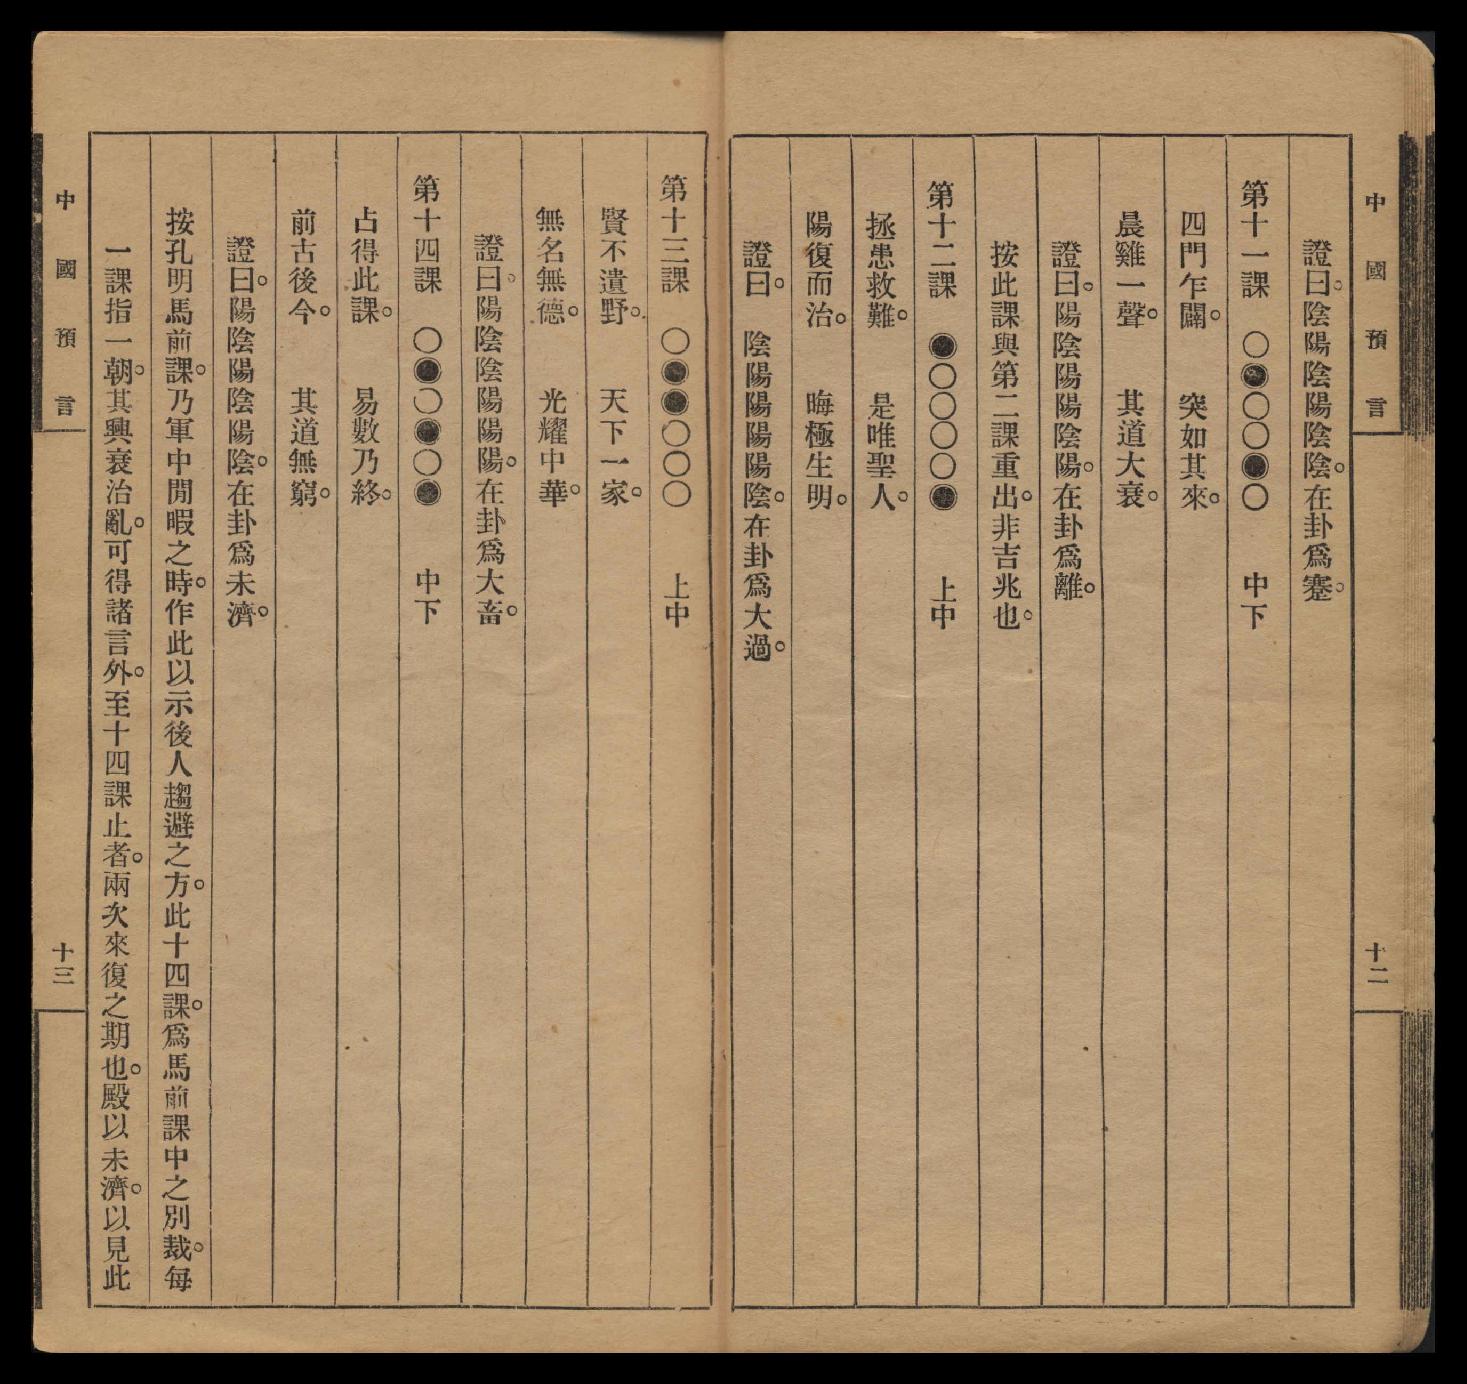 中國預言
十二
證曰。陰陽陰陽陰陰。在卦爲蹇。
第十一課 ○●○○●○ 中下
四門乍闢。 突如其來。
晨雞一聲。 其道大衰。
證曰。陽陰陽陽陰陽。在卦爲離。
按此課與第二課重出。非吉兆也。
第十二課 ●○○○○● 上中
拯患救難。 是唯聖人。
陽復而治。 晦極生明。
證曰。 陰陽陽陽陽陰。在卦爲大過。
第十三課 ○●●○○○ 上中
賢不遺野。 天下一家。
無名無德。 光耀中華。
證曰。陽陰陰陽陽陽。在卦爲大畜。
第十四課 ○●○●○● 中下
占得此課。 易數乃終。
前古後今。 其道無窮。
證曰。陽陰陽陰陽陰。在卦爲未濟。
按孔明馬前課。乃軍中閒暇之時。作此以示後人趨避之方。此十四課。爲馬前課中之別裁。每
一課指一朝。其興衰治亂。可得諸言外。至十四課止者。兩次來復之期也。殿以未濟。以見此
中國預言
十三